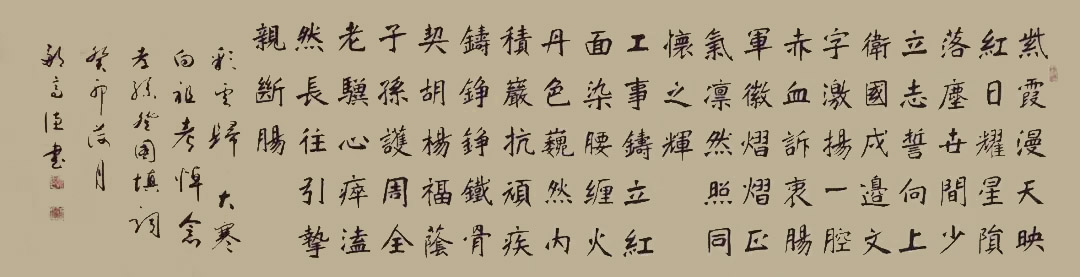 紫霞漫天映
紅日耀星隕
落塵世間少
立志誓向上
衛國戍邊文
字激揚一腔
赤血訴衷腸
軍徽熠熠正
氣凛然照同
懷之輝
工事鑄立紅
面染腰纏火
丹色巍然內
積巖抗頑疾
鑄錚錚鐵骨
契胡楊福蔭
子孫護周全
老驥心瘁溘
然長往引摯
親斷腸
彩雲歸 大寒
向祖考悼念
孝孫 國填詞
癸卯荷月
書